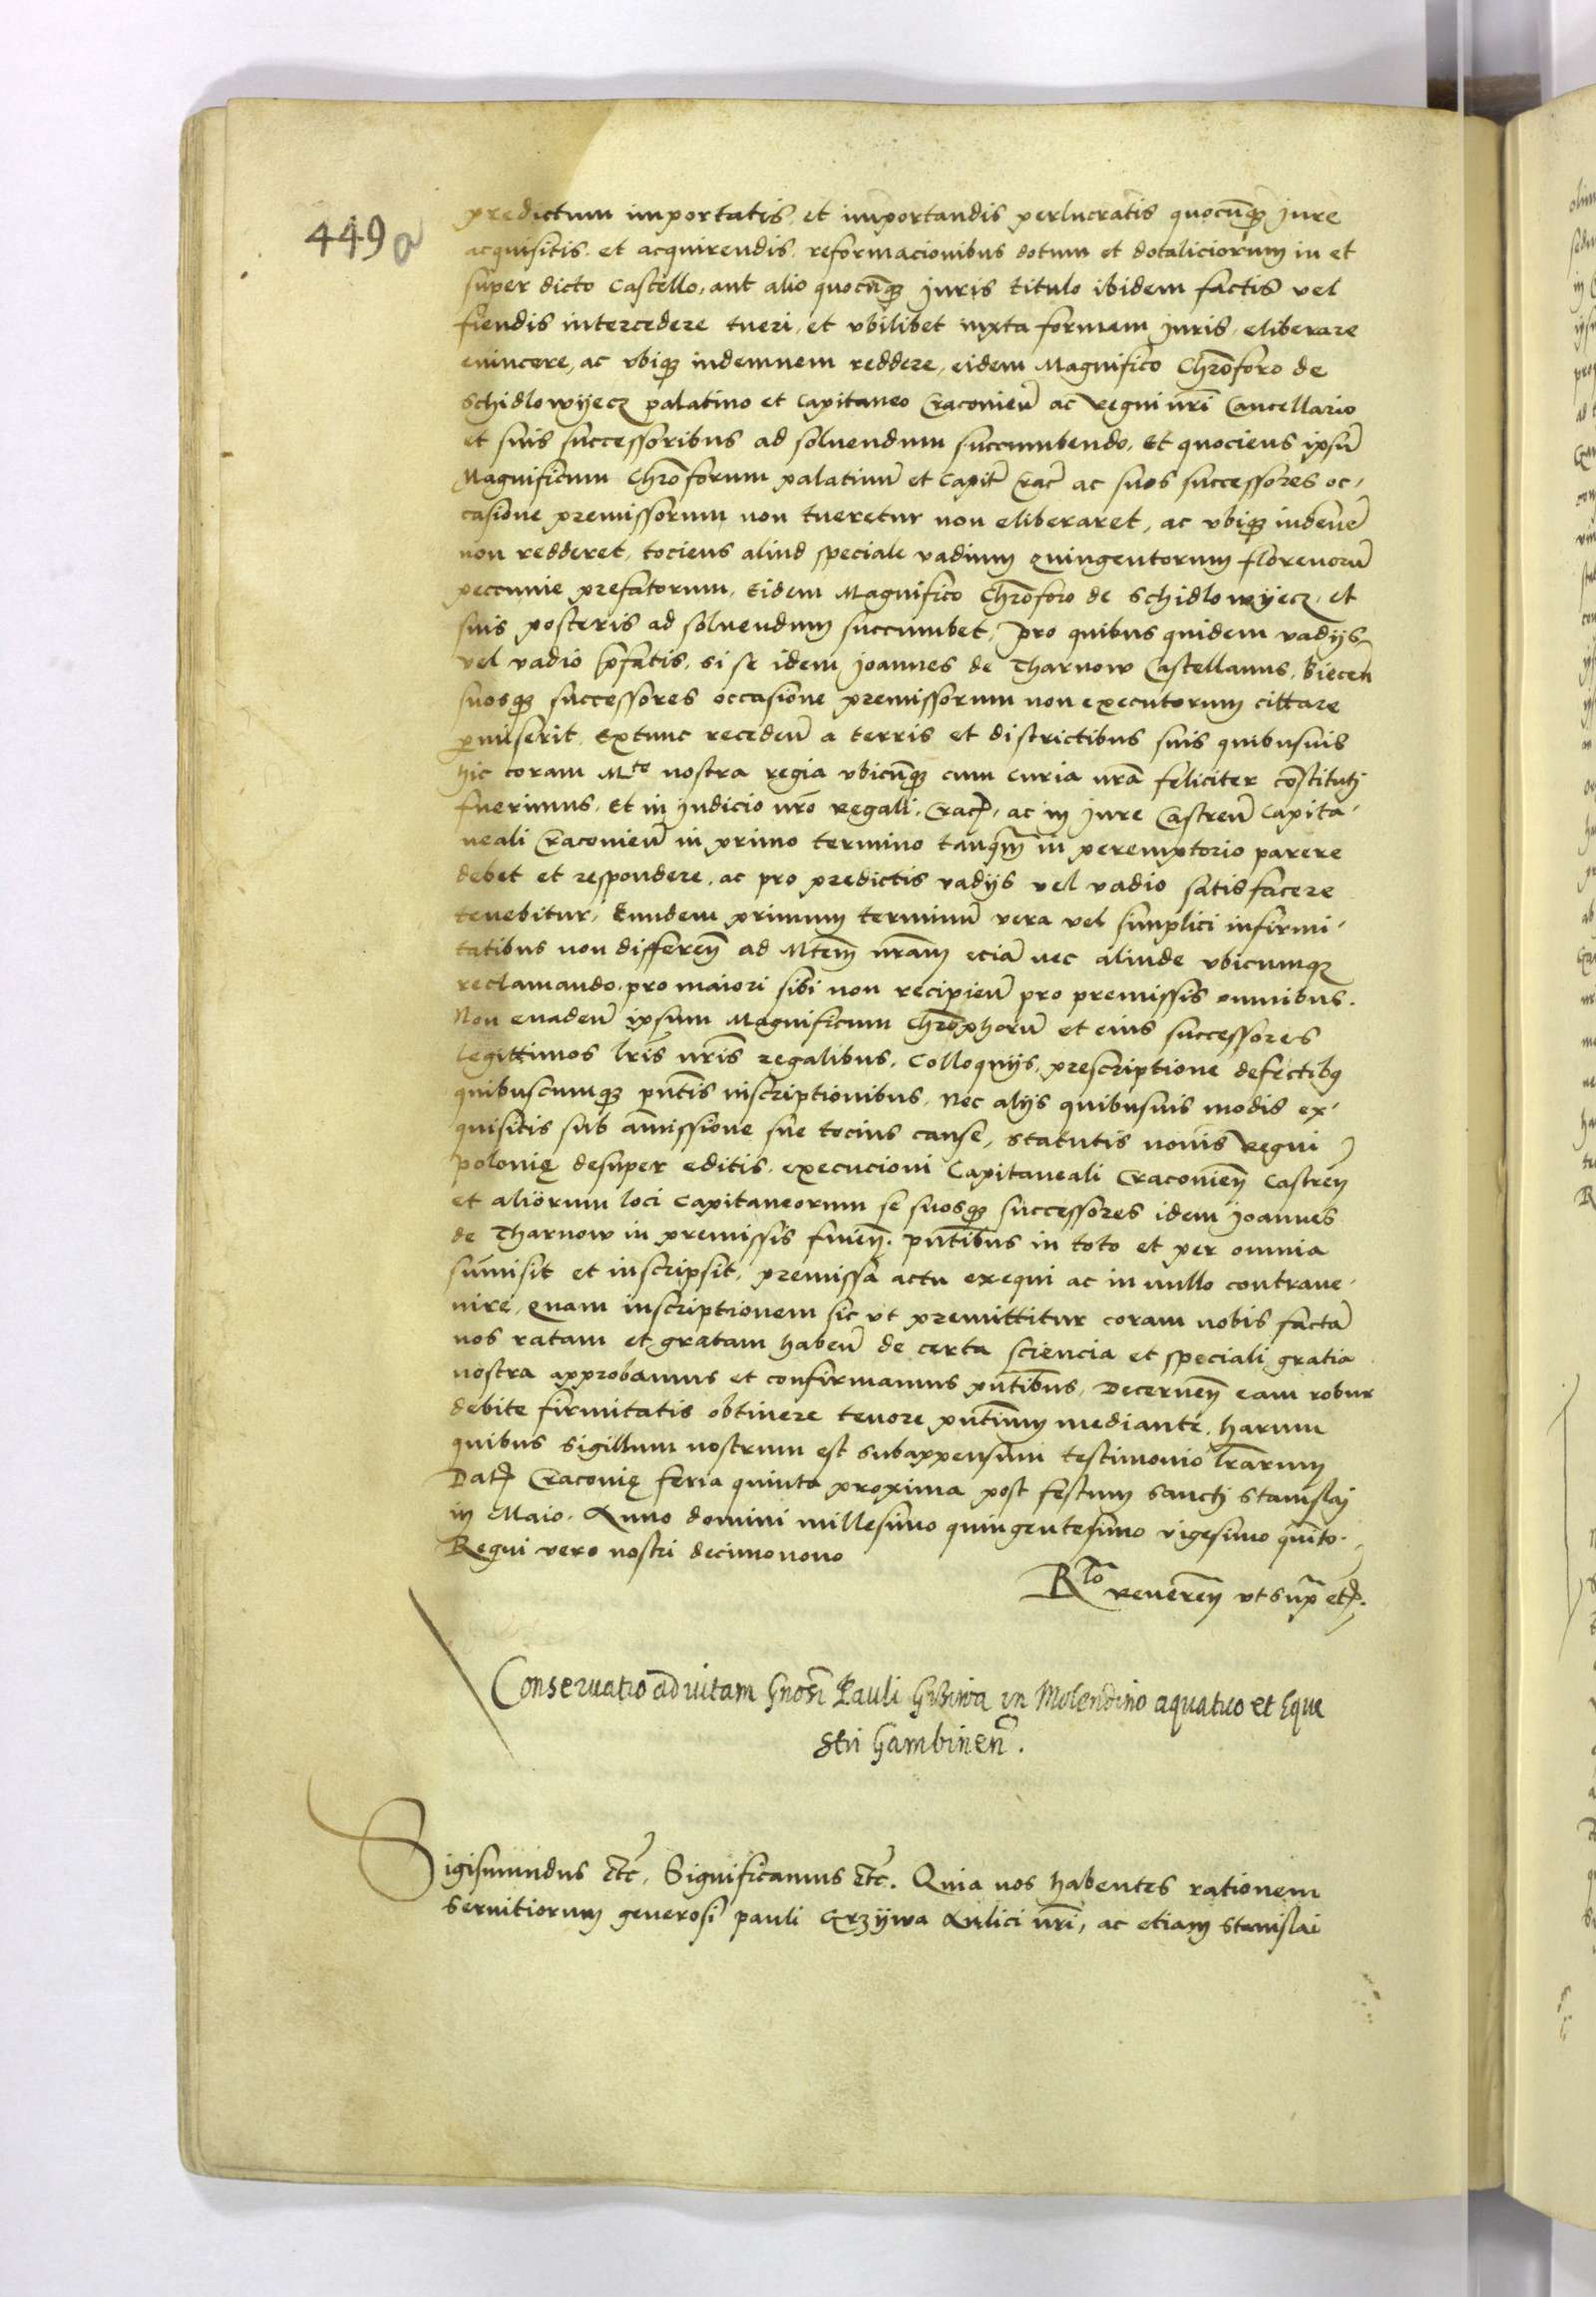 449 a
predictum importatis et importandis perlucratis quocūqȝ jure
acquisitis et acquirendis reformacionibus dotum et dotaliciorum in et
super dicto Castello, aut alio quocūqȝ juris titulo ibidem factis vel
fiendis intercedere tueri, et vbilibet iuxta formam juris, eliberare
euincere, ac vbiqȝ indemnem reddere, eidem Magnifico Chrōforo de
Schidlowyecz palatino et Capitaneo Cracovieñ ac Regni nr̄i Cancellario
et suis successoribus ad soluendum succumbendo. Et quociens ipsū
Magnificum Chrōforum palatinū et Capit̄ Crac̄ ac suos successores oc-
casione premissorum non tueretur non eliberaret, ac vbiqȝ indēnē
non redderet, tociens aliud speciale vadium quingentorum florenorū
peccunie prefatorum. Eidem Magnifico Chrōforo de Schidlowyecz, et
suis posteris ad soluendum succumbet, pro quibus quidem vadijs
vel vadio p̄fatis, si se idem Joannes de Tharnow Castellanus, Biecen̄
suosqȝ successores occasione premissorum non executorum cittare
p̱miserit, Extunc recedeñ a terris et districtibus suis quibusuis
hic coram Mte nostra regia vbicūqȝ cum curia nr̄a feliciter cōstituti
fuerimus. Et in Judicio nr̄o Regali, Crac̄, ac in Jure Castreñ Capita-
neali Cracovieñ in primo termino tanqm̄ in peremptorio parere
debet et respondere, ac pro predictis vadijs vel vadio satisfacere
tenebitur, Eundem primum terminū vera vel simplici infirmi-
tatibus non differeñ ad Mtem̄ nr̄am eciā nec aliunde vbicumqȝ
reclamando, pro maiori sibi non recipieñ pro premissis omnibus.
Non euadeñ ipsum Magnificum Chrōphorū et eius successores
legittimos lr̄is nr̄is regalibus, Colloquijs, prescriptione defectibȝ
quibuscumqȝ pn̄tis inscriptionibus, Nec alijs quibusuis modis ex-
quisitis sub amissione sue tocius cause, Statutis nouis Regni
Polonię desuper editis, execucioni Capitaneali Cracovieñ Castreñ
et aliorum loci Capitaneorum se suosqȝ successores idem Joannes
de Tharnow in premissis pn̄tibus in toto et per omnia
sūmisit et inscripsit, premissa actu exequi ac in nullo contraue-
nire, Quam inscriptionem sic vt premittitur coram nobis factā
nos ratam et gratam habeñ de certa sciencia et speciali gratia
nostra approbamus et confirmamus pn̄tibus, Decerneñ eam robur
debite firmitatis obtinere tenore pn̄tium mediante, harum
quibus sigillum nostrum est subappensum testimonio lr̄arum
Dat̄ Cracovię feria quinta proxima post festum Sancti Stanislaj
in Maio. Anno domini millesimo quingentesimo vigesimo quīto.
Regni vero nostri decimonono
Rlo reuereñ vt supra etc̄.
Conseruatio ad vitam Gnōsi Pauli in Molendino aquatico et Eque
stri Gambineñ.
Sigismundus etc̄, Significamus etc̄. Quia nos habentes rationem
seruitiorum generosi pauli Grzywa Aulici nr̄i, ac etiam Stanislai